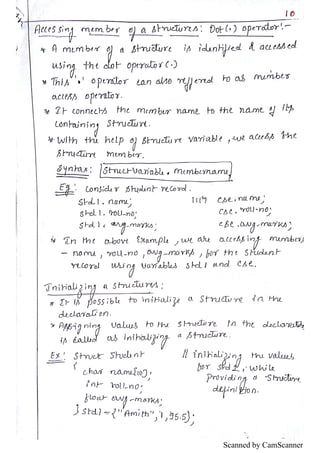 10
Accessing member of a structures: Dot(.) operator :-
* A member of a structure is identified & accessed
using the dot operator (.)
* This '.' operator can also reffered to as member
access operator.
* It connects the member name to the name of its
containing structure.
* With the help of structure variable, we access the
structure member.
Syntax: Struct Variable . membername;
Eg: Consider student record.
Std1. name; |||ly cse. name;
Std1. roll-no; cse. roll-no;
Std1. avg-marks; cse. avg-marks;
* In the above Example, we are accessing members
- name, roll-no, avg-marks, for the student
record using variables std1 and cse.
Initializing a structures:
* It is possible to initialize a structure in the
declaration.
* Assigning values to the structure in the declaration
is called as initializing a structure.
Ex: Struct Student // initializing the values
{ for std1, while
char name[20]; Providing a structure
int roll-no; definition.
float avg-marks;
} Std1 = {"Amith", 1, 95.5};
Scanned by CamScanner